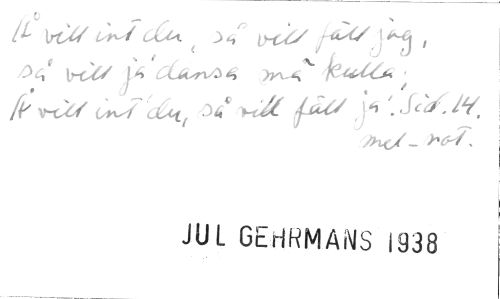 Å vill int du, så vill fäll jag,
så vill ja' dansa mä kulla;
Å vill int' du, så vill fäll ja'. Sid. 14.
mel-not.
JUL GEHRMANS 1938